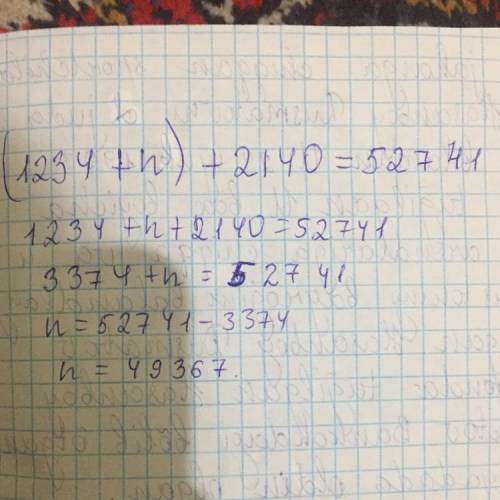 (1234 + n) + 2140 = 52741
1234 + n + 2140 = 52741
3374 + n = 52741
n = 52741 - 3374
n = 49367.